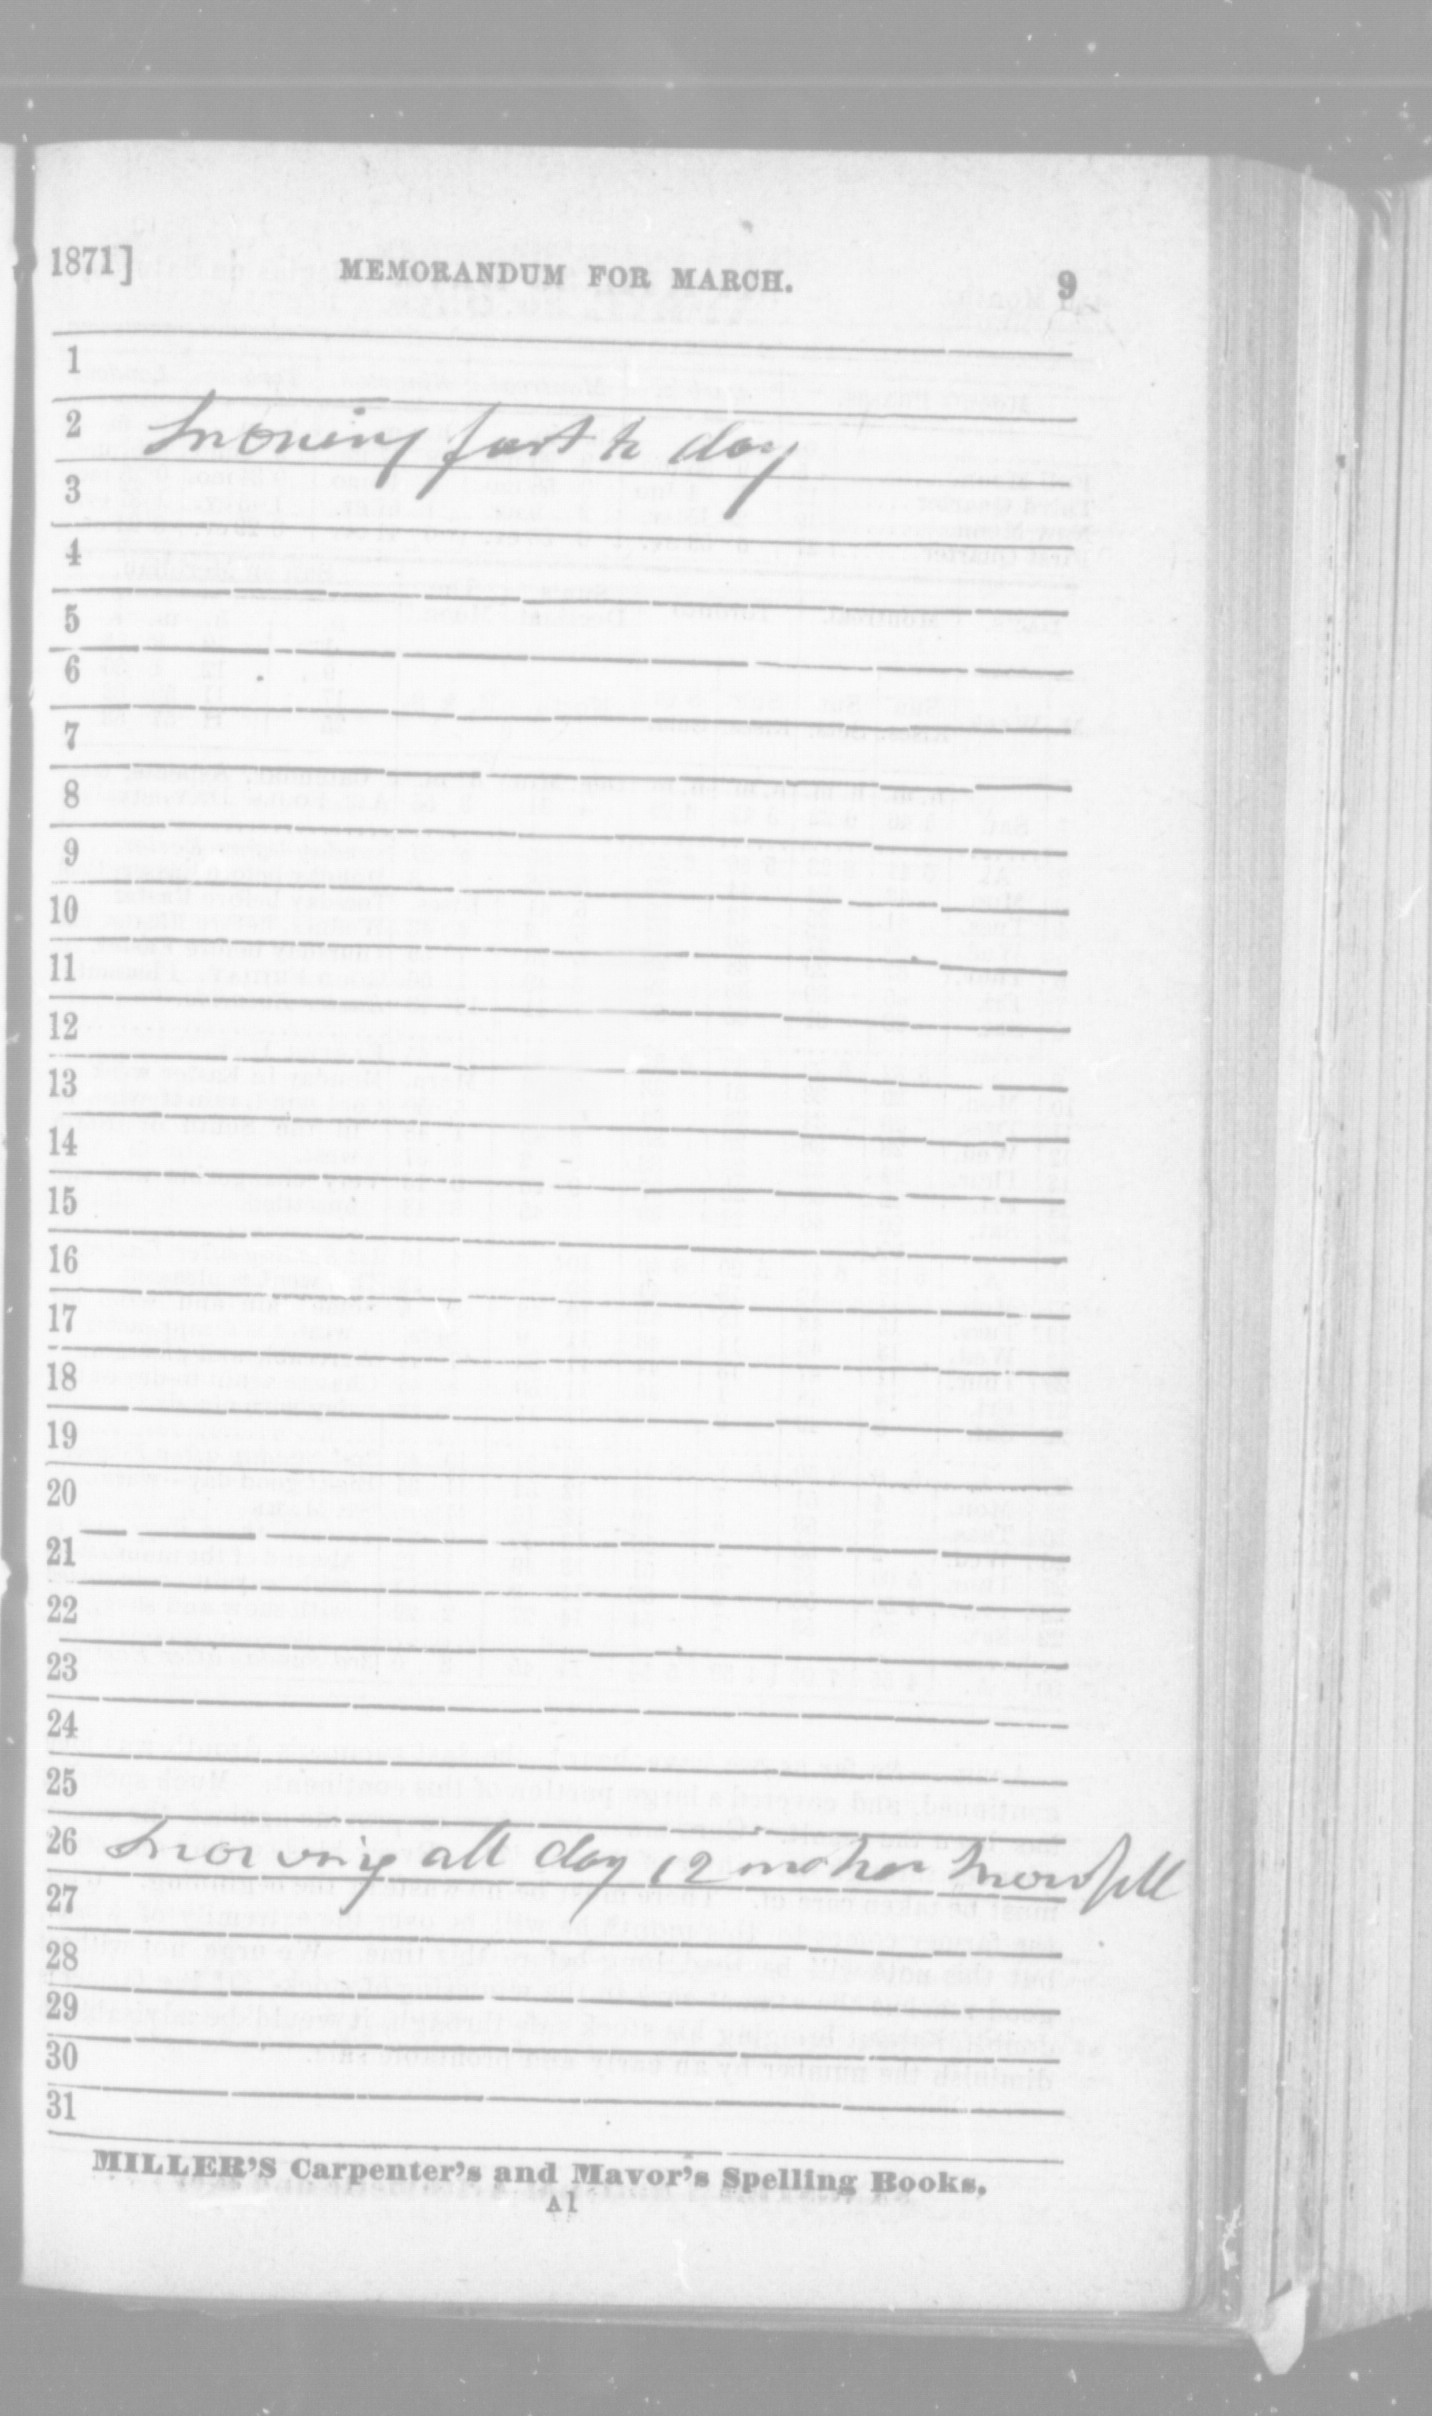 1871] MEMORANDUM FOR MARCH. 9
1
2 Snowing fast to day
3
4
5
6
7
8
9
10
11
12
13
14
15
16
17
18
19
20
21
22
23
24
25
26 Snowing all day 12 inches Snow fell
27
28
29
30
31
MILLER'S Carpenter's and Mavor's Spelling Books.
A1